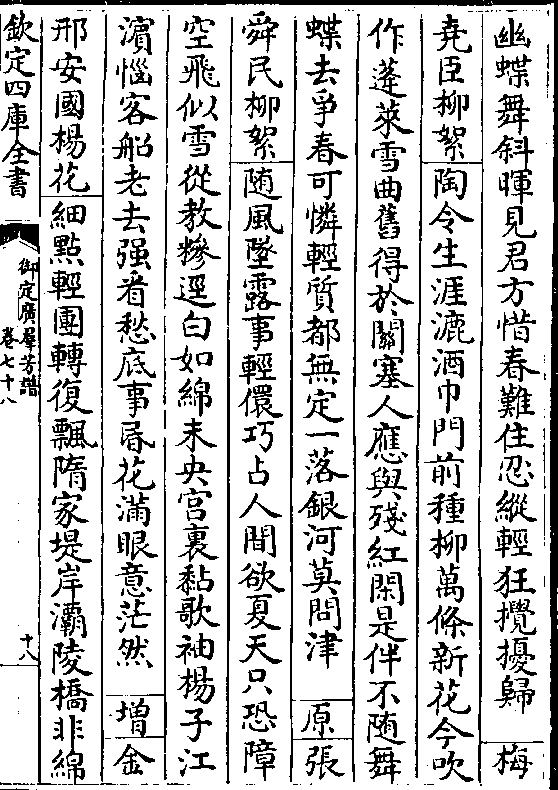 幽蝶舞斜暉見君方惜春難住忍縱輕狂攪擾歸　梅
堯臣柳絮　陶令生涯漉酒巾門前種柳萬條新花今吹
作蓬萊雪曲舊得於關塞人應與殘紅閑是伴不隨舞
蝶去爭春可憐輕質都無定一落銀河莫問津　原　張
舜民柳絮　随風墜露事輕儇巧占人間欲夏天只恐障
空飛似雪從教糝逕白如綿未央宫裏黏歌袖楊子江
濵惱客船老去强看愁底事昬花滿眼意茫然　增　金
邢安國楊花　細點輕團轉復飄隋家堤岸灞陵橋非綿
欽定四庫全書
御定廣羣芳譜
卷七十八
十八